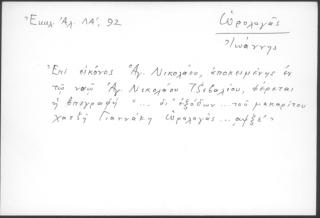 Ἐκκλ. Ἀλ. ΛΑ', 92
Ὡρολογᾶς
Ἰωάννης
Ἐπὶ εἰκόνος Ἁγ. Νικολάου, ἀποκειμένης ἐν
τῷ ναῷ Ἁγ. Νικολάου Τζιβαλίου, φέρεται
ἡ ἐπιγραφὴ "... δι' ἐξόδων ... τοῦ μακαρίτου
χατζῆ Γιαννάκη Ὡρολογᾶς ... αψξε'"